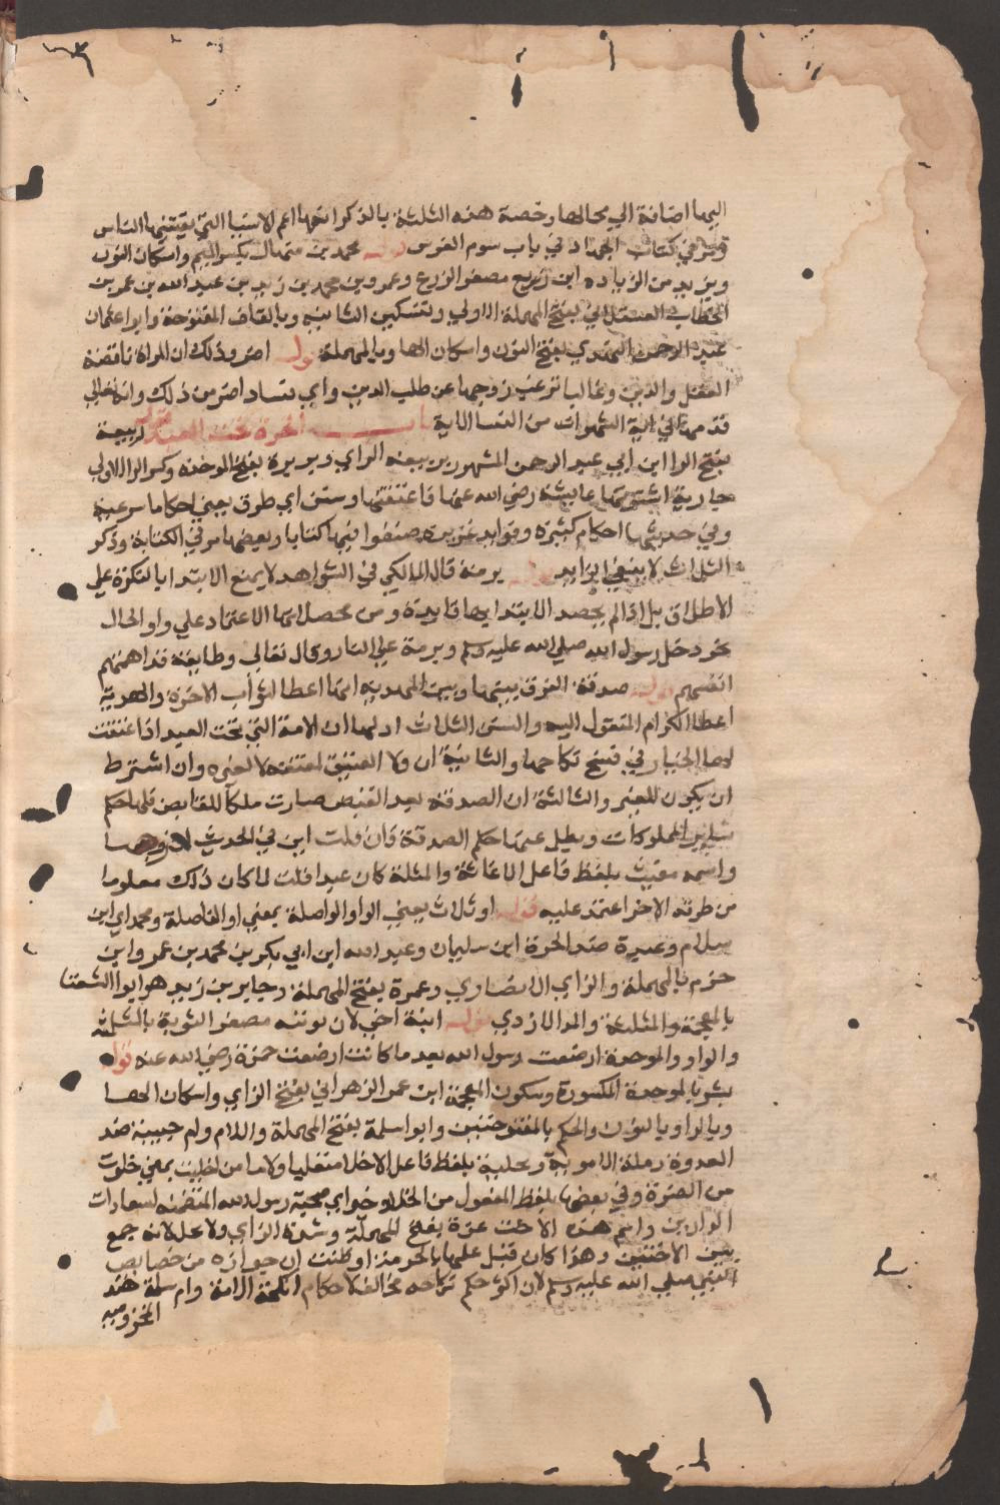 اليها اضافة الي محالها وخصة هذه الثلثة بالذكر لانها اعم الاشيا التي يقتنيها الناس
ومر في كتاب الجهاد في باب شوم الفرس قوله محمد بن منهال بكسر الميم واسكان النون
ويزيد من الزياده ابن زريع مصغر الزرع وعمر بن محمد بن زيد بن عبد الله بن عمر بن
الخطاب العسقلاني بفتح المهملة الاولي وتسكين الثانيه وبالقاف المفتوحة وابو عثمان
عبد الرحمن النهدي بفتح النون واسكان الها وبالمهملة قوله اضر وذلك ان المراة ناقصة
العقل والدين وغالبا ترغب زوجها عن طلب الدين واي فساد اضر من ذلك وانه تعالي
قدمها في اية الشهوات من النسا الاية باب الحرة تحت العبد قوله ربيعة
بفتح الرا ابن ابي عبد الرحمن المشهور بربيعه الراي وبريرة بفتح الموحده وكسر الرا الاولي
جارية اشترتها عايشه رضي الله عنها فاعتقتها وسنن اي طرق يعني احكاما شرعيه
وفي حديثها احكام كثيره وفوايد غزيره صنفوا فيها كتابا وبعضها مر في الكتابة وذكر
الثلاث لا ينفي الزايد قوله برمة قال المالكي في الشواهد لا يمنع الابتدا بالنكرة علي
الاطلاق بل اذا لم يحصل الابتدا بها فايدة ومن محصلاتها الاعتماد علي واو الحال
نحو دخل رسول الله صلي الله عليه وسلم وبرمة علي النار وقال تعالي وطايفة قد اهمتهم
انفسهم قوله صدقة الفرق بينها وبين الهدية انها اعطا لثواب الاخرة والهدية
اعطا لاكرام المنقول اليه والسنن الثلاث اولها ان الامة التي تحت العبد اذا عتقت
لها الخيار في فسخ نكاحها والثانية ان ولا العتيق لمعتقه لا لغيره وان اشترط
ان يكون للغير والثالثة ان الصدقة بعد القبض صارت ملكا للقابض فلها حكم
ساير المملوكات وبطل عنها حكم الصدقة فان قلت اين في الحديث ان زوجها
واسمه مغيث بلفظ فاعل الاغاثة والمثلة كان عبدا قلت لما كان ذلك معلوما
من طرقه الاخر اعتمد عليه قوله او ثلاث يعني الواو الواصلة بمعني او الفاصلة ومحمد اي ابن
سلام وعبدة ضد الحرة ابن سليمان وعبد الله ابن ابي بكر بن محمد بن عمرو ابن
حزم بالمهملة والزاي الانصاري وعمرة بفتح المهملة وجابر بن زيد هو ابو الشعثا
بالمعجمة والمثلثة والمد الازدي قوله ابنة اخي لان ثويبه مصغر الثوبة بالمثلثه
والواو والموحدة ارضعت رسول الله بعد ما كانت ارضعت حمزة رضي الله عنه قوله
بشر بالموحدة المكسورة وسكون المعجمة ابن عمر الزهراني بفتح الزاي واسكان الها
وبالرا وبالنون والحكم بالمفتوحتين وابو سلمة بفتح المهملة واللام وام حبيبة ضد
العدوة رملة الاموية وبمخلية بلفظ فاعل الاخلا متعديا ولازما من اخليت بمعني خلوت
من الضرة وفي بعضها بلفظ المفعول من الخلاء وخير اي صحبة رسول الله المتضمنه لسعادات
الدارين واسم هذه الاخت عزة بفتح المهملة وشدة الزاي ولا يحل لانه جمع
بين الاختين وهذا كان قبل علمها بالحرمة او ظنت ان جوازه من خصايص
النبي صلي الله عليه وسلم لان اكثر حكم نكاحه مخالف لاحكام انكحة الامة وام سلمة هند
المخزوميه